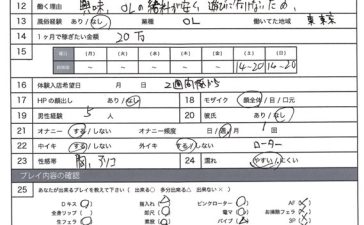 12 働く理由 興味、OLの給料が安く遊びに行けないため、
13 風俗経験 あり/なし 業種 OL 働いてた地域 東東京
14 1ヶ月で稼ぎたい金額 20万
15 曜日 (月) (火) (水) (木) (金) (土) (日)
時間帯 ~ ~ ~ ~ ~ 14-20 14-20
16 体験入店希望日 月 日 2週間後から
17 HPの顔出し あり/なし 18 モザイク 顔全体/目/口元
19 男性経験 5 人 20 彼氏 あり/なし
21 オナニー する/しない オナニー頻度 日/週/月 1回
22 中イキ する/しない 外イキ する/しない ローター
23 性感帯 24 濡れ やすい/にくい
プレイ内容の確認
25 あなたが出来るプレイを教えて下さい (出来る○ 多分出来る△ 出来ない×)
Dキス ○ 指入れ ピンクローター AF
全身リップ 即尺 電マ お掃除フェラ
生フェラ バイブ 3P ○